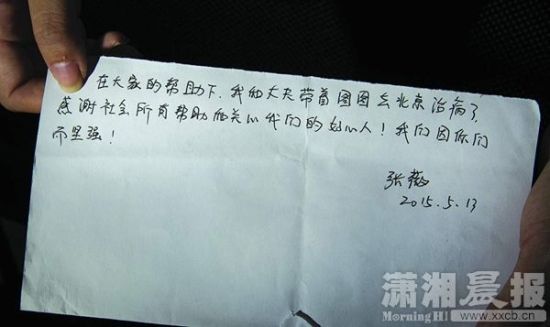 在大家的帮助下,我和丈夫带着图图去北京治病了,
感谢社会所有帮助和关心我们的好心人!我们因你们
而坚强!
张薇
2015.5.13
潇湘晨报
Morning H
www.xxcb.cn